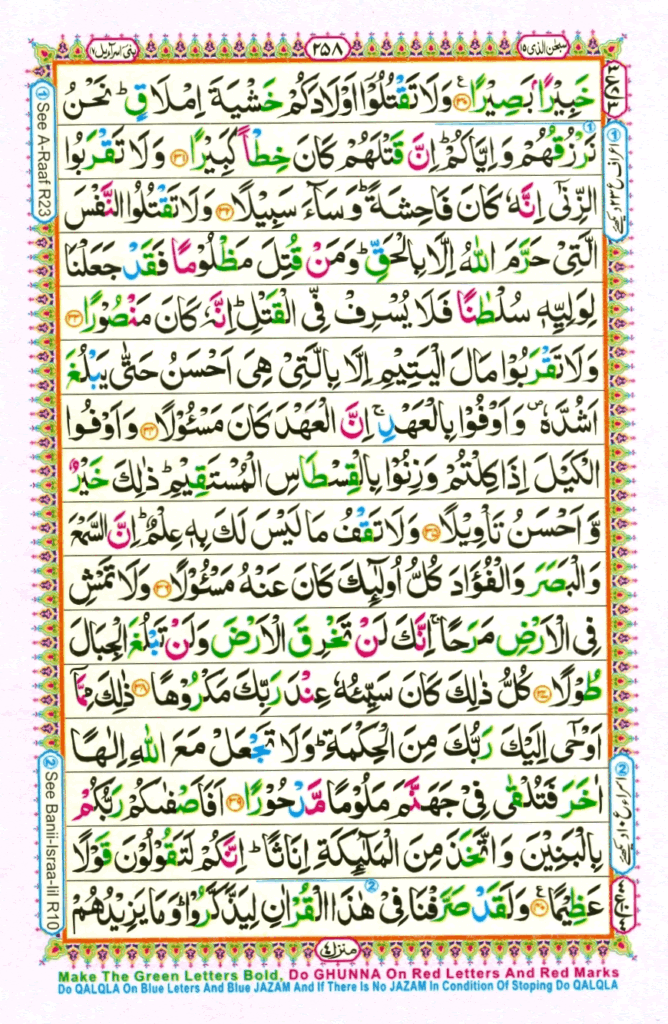 سبحٰن الذی ۱۵
۲۵۸
بنی اسرآءیل ۱۷
خَبِيْرًۢا بَصِيْرًا ﴿۳۰﴾ وَلَا تَقْتُلُوْۤا اَوْلَادَكُمْ خَشْيَةَ اِمْلَاقٍ ؕ نَحْنُ
نَرْزُقُهُمْ وَاِيَّاكُمْ ؕ اِنَّ قَتْلَهُمْ كَانَ خِطْاً كَبِيْرًا ﴿۳۱﴾ وَلَا تَقْرَبُوا
الزِّنٰۤى اِنَّهٗ كَانَ فَاحِشَةً ؕ وَسَآءَ سَبِيْلًا ﴿۳۲﴾ وَلَا تَقْتُلُوا النَّفْسَ
الَّتِىْ حَرَّمَ اللّٰهُ اِلَّا بِالْحَقِّ ؕ وَمَنْ قُتِلَ مَظْلُوْمًا فَقَدْ جَعَلْنَا
لِوَلِيِّهٖ سُلْطٰنًا فَلَا يُسْرِفْ فِّى الْقَتْلِ ؕ اِنَّهٗ كَانَ مَنْصُوْرًا ﴿۳۳﴾
وَلَا تَقْرَبُوْا مَالَ الْيَتِيْمِ اِلَّا بِالَّتِىْ هِىَ اَحْسَنُ حَتّٰى يَبْلُغَ
اَشُدَّهٗ ۪ وَاَوْفُوْا بِالْعَهْدِ ۚ اِنَّ الْعَهْدَ كَانَ مَسْئُوْلًا ﴿۳۴﴾ وَاَوْفُوا
الْكَيْلَ اِذَا كِلْتُمْ وَزِنُوْا بِالْقِسْطَاسِ الْمُسْتَقِيْمِ ؕ ذٰلِكَ خَيْرٌ
وَّاَحْسَنُ تَاْوِيْلًا ﴿۳۵﴾ وَلَا تَقْفُ مَا لَيْسَ لَكَ بِهٖ عِلْمٌ ؕ اِنَّ السَّمْعَ
وَالْبَصَرَ وَالْفُؤَادَ كُلُّ اُولٰٓئِكَ كَانَ عَنْهُ مَسْئُوْلًا ﴿۳۶﴾ وَلَا تَمْشِ
فِى الْاَرْضِ مَرَحًا ۚ اِنَّكَ لَنْ تَخْرِقَ الْاَرْضَ وَلَنْ تَبْلُغَ الْجِبَالَ
طُوْلًا ﴿۳۷﴾ كُلُّ ذٰلِكَ كَانَ سَيِّئُهٗ عِنْدَ رَبِّكَ مَكْرُوْهًا ﴿۳۸﴾ ذٰلِكَ مِمَّاۤ
اَوْحٰۤى اِلَيْكَ رَبُّكَ مِنَ الْحِكْمَةِ ؕ وَلَا تَجْعَلْ مَعَ اللّٰهِ اِلٰهًا
اٰخَرَ فَتُلْقٰى فِىْ جَهَنَّمَ مَلُوْمًا مَّدْحُوْرًا ﴿۳۹﴾ اَفَاَصْفٰىكُمْ رَبُّكُمْ
بِالْبَنِيْنَ وَاتَّخَذَ مِنَ الْمَلٰٓئِكَةِ اِنَاثًا ؕ اِنَّكُمْ لَتَقُوْلُوْنَ قَوْلًا
عَظِيْمًا ﴿۴۰﴾ وَلَقَدْ صَرَّفْنَا فِىْ هٰذَا الْقُرْاٰنِ لِيَذَّكَّرُوْا ؕ وَمَا يَزِيْدُهُمْ
منزل ۴
① See A-Raaf R23
② See Banii-Israa-Iil R10
Make The Green Letters Bold, Do GHUNNA On Red Letters And Red Marks
Do QALQLA On Blue Leters And Blue JAZAM And If There Is No JAZAM In Condition Of Stoping Do QALQLA